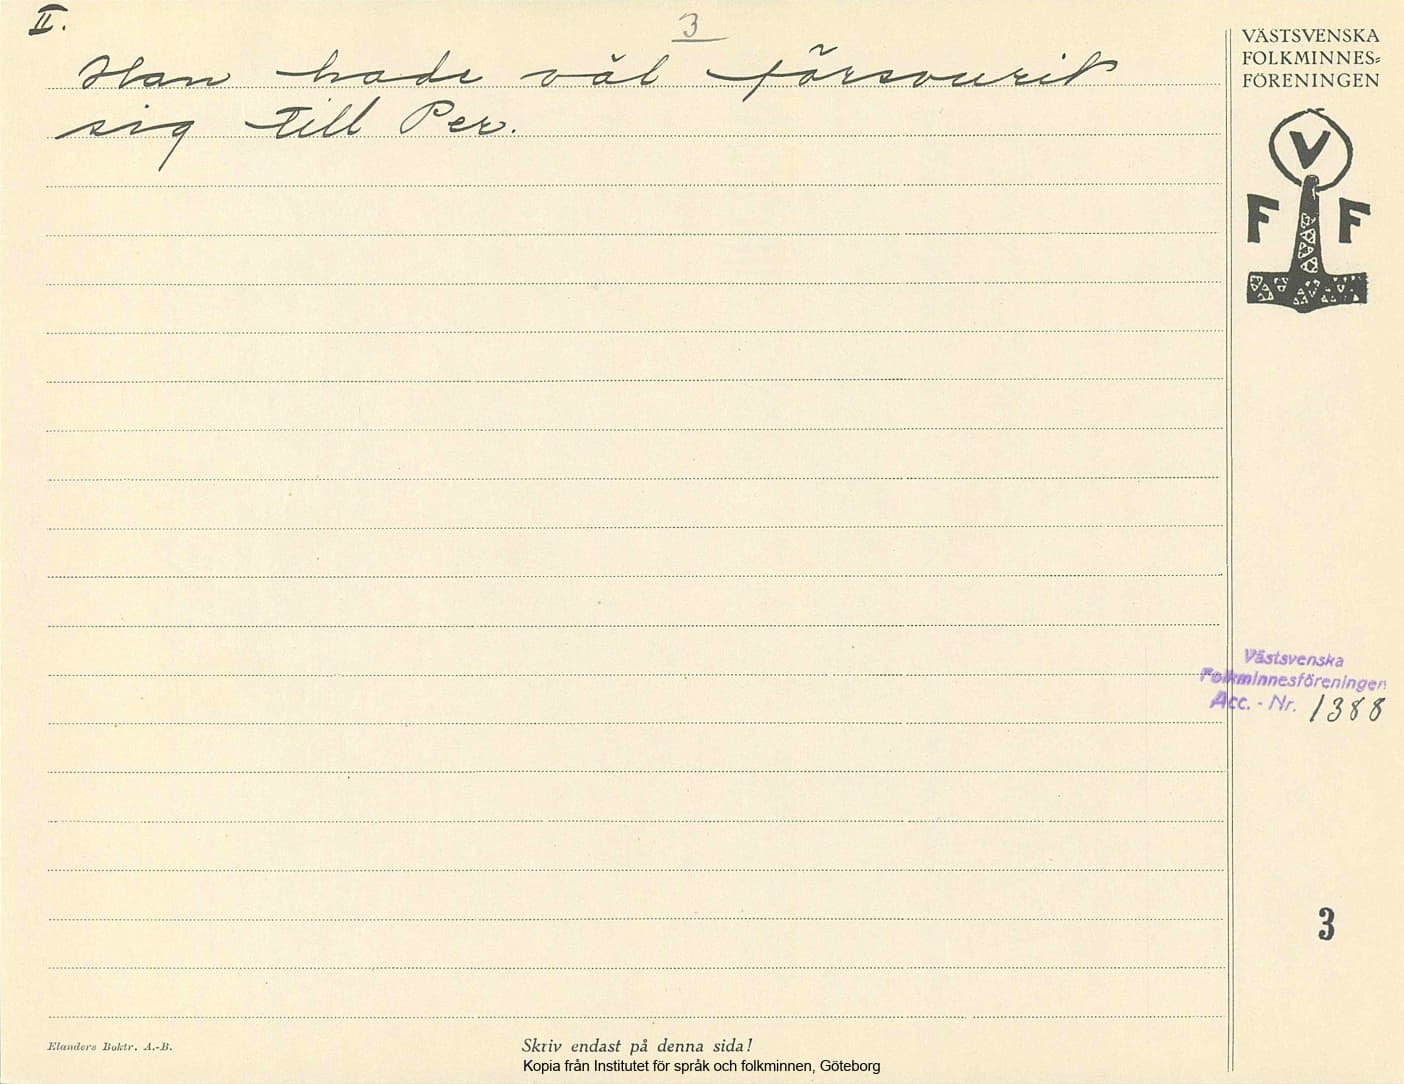 II.
3
Han hade väl försvurit
sig till Per.
VÄSTSVENSKA
FOLKMINNES=
FÖRENINGEN
V
F F
Västsvenska
Folkminnesföreningen
Acc. - Nr. 1388
3
Elanders Boktr. A.-B.
Skriv endast på denna sida!
Kopia från Institutet för språk och folkminnen, Göteborg